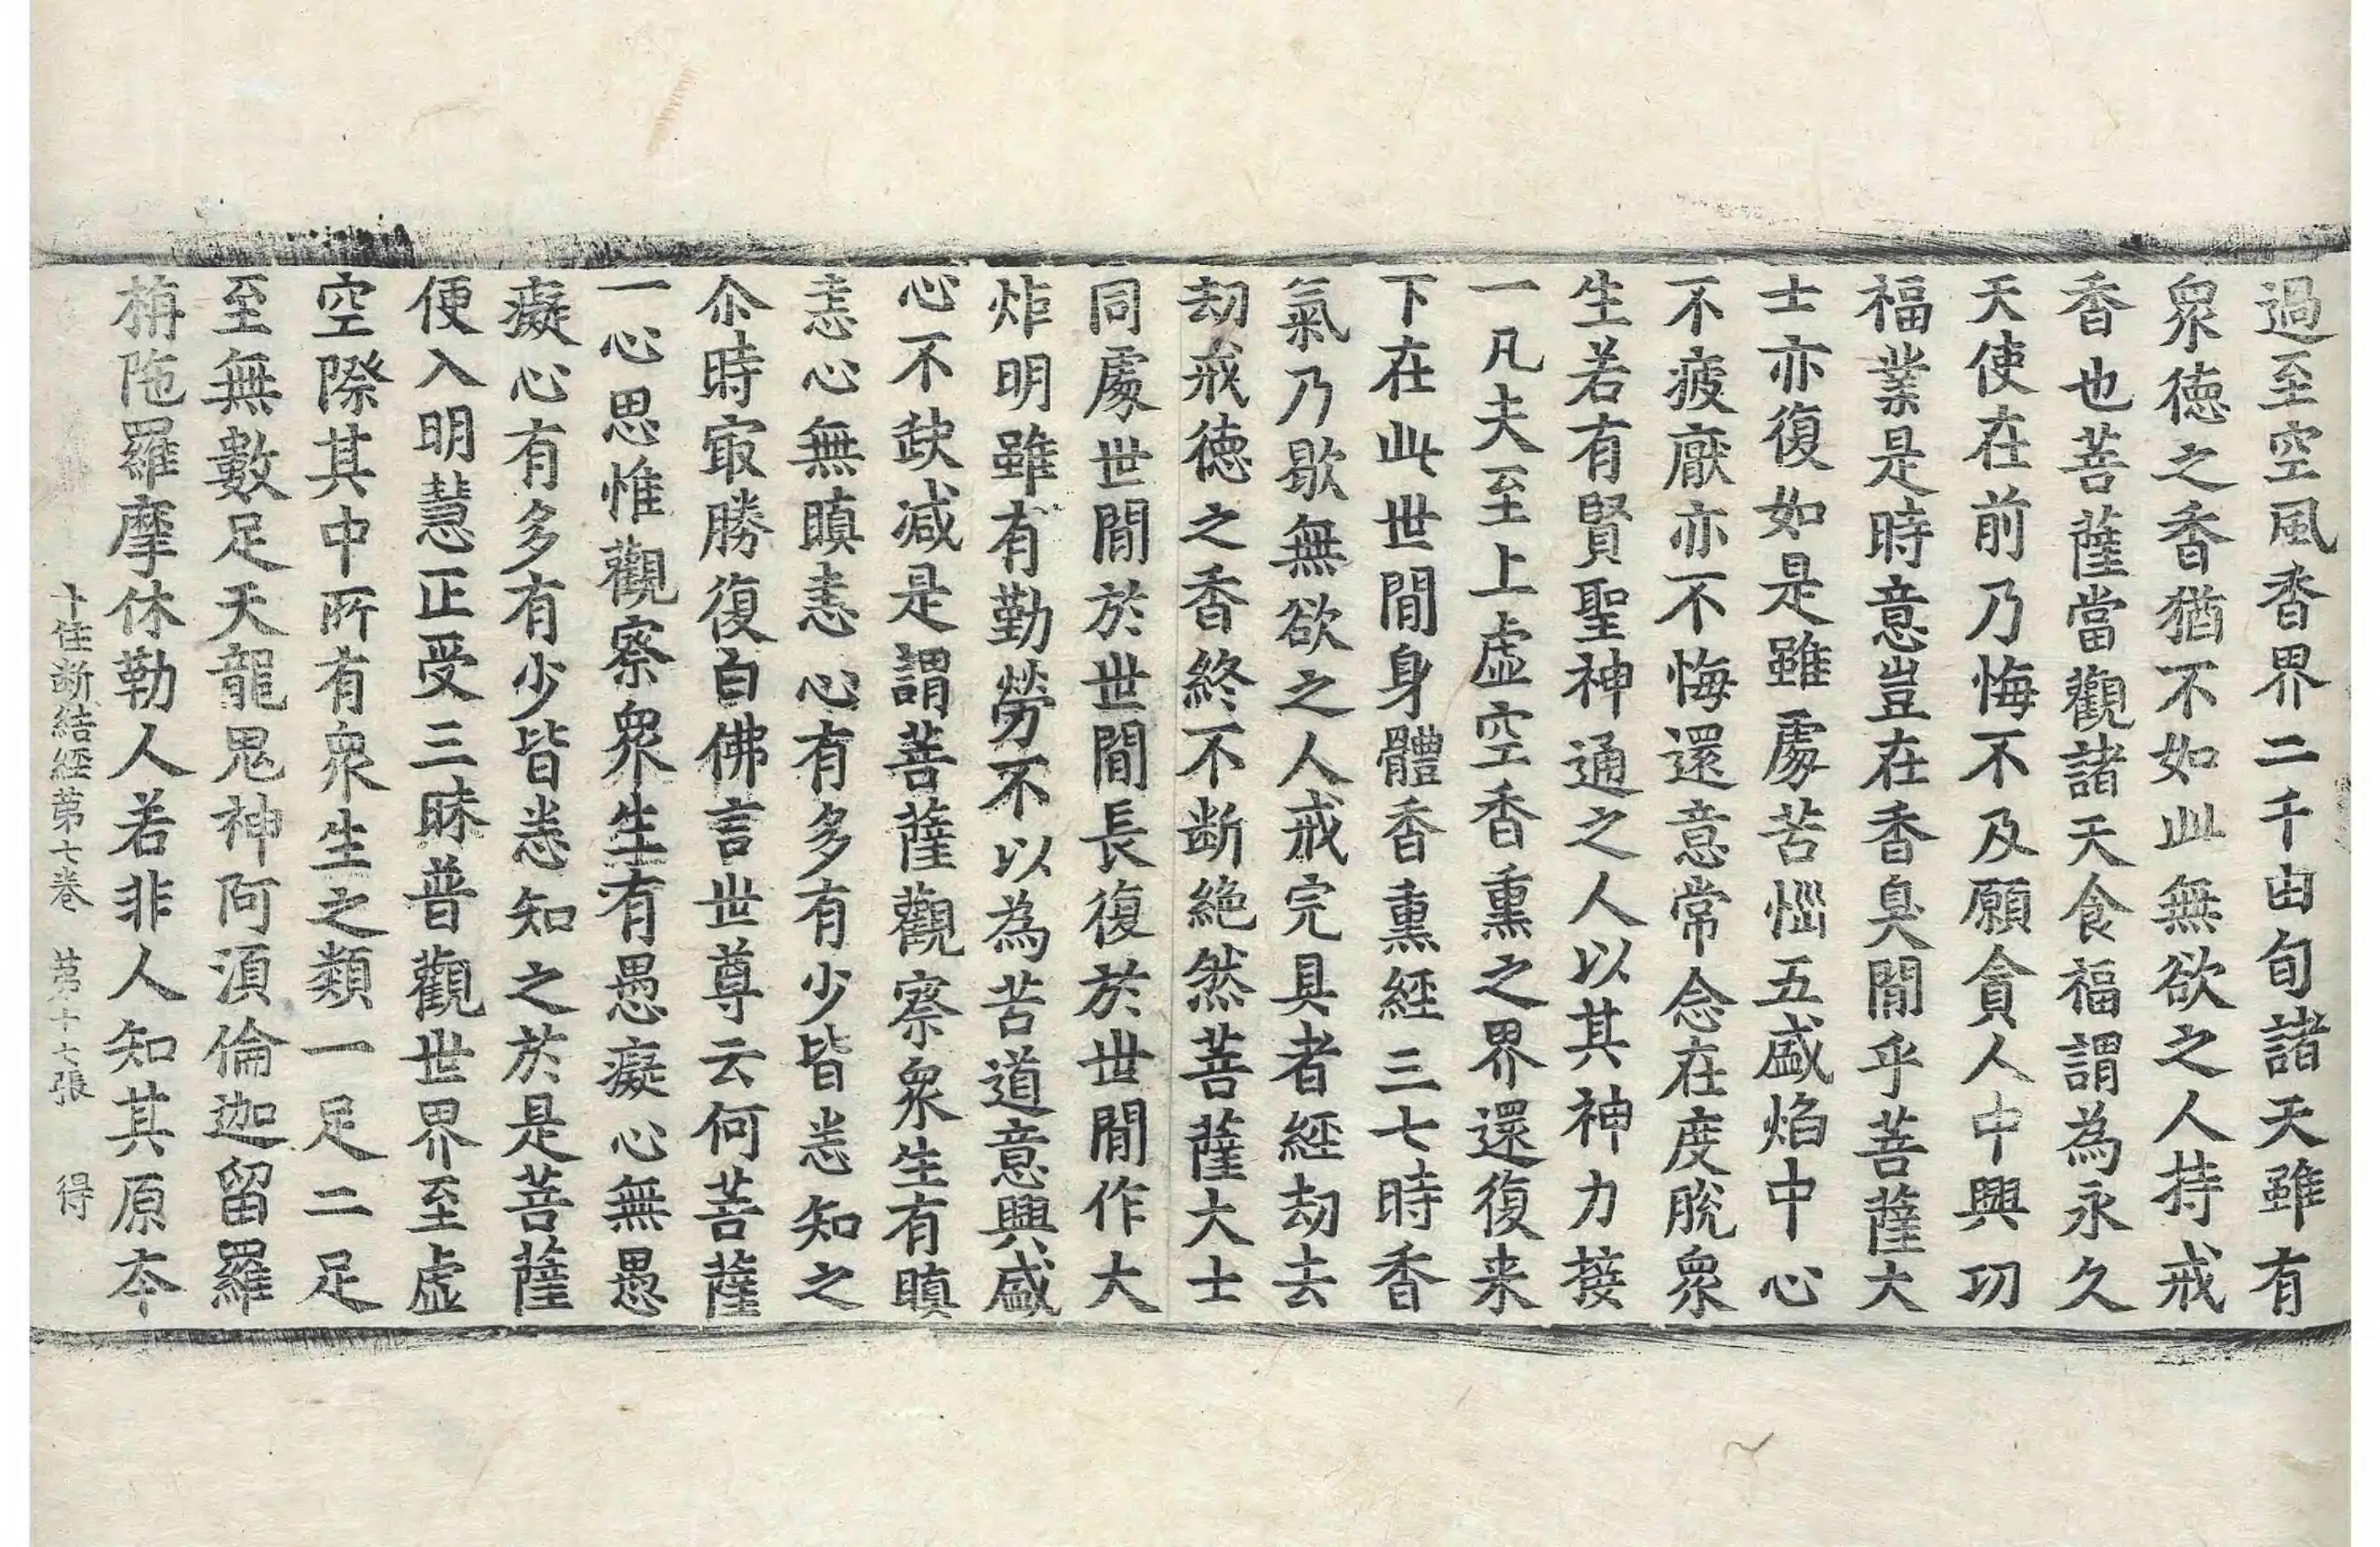 過至空風香界二千由旬諸天雖有
衆徳之香猶不如此無欲之人持戒
香也菩薩當觀諸天食福謂為永久
天使在前乃悔不及願貪人中興功
福業是時意豈在香臭閒乎菩薩大
士亦復如是雖處苦惱五盛焰中心
不疲厭亦不悔還意常念在度脫衆
生若有賢聖神通之人以其神力接
一凡夫至上虛空香熏之界還復来
下在此世閒身體香熏經三七時香
氣乃歇無欲之人戒完具者經劫去
劫戒徳之香終不断絶然菩薩大士
同處世閒於世閒長復於世閒作大
炬明雖有勤勞不以為苦道意興盛
心不缺减是謂菩薩觀察衆生有瞋
恚心無瞋恚心有多有少皆悉知之
尒時㝡勝復白佛言世尊云何菩薩
一心思惟觀察衆生有愚癡心無愚
癡心有多有少皆悉知之於是菩薩
便入明慧正受三昧普觀世界至虛
空際其中所有衆生之類一足二足
至無數足天龍鬼神阿湏倫迦留羅
栴陁羅摩休勒人若非人知其原本
十住断結經第七卷 第十七張 得